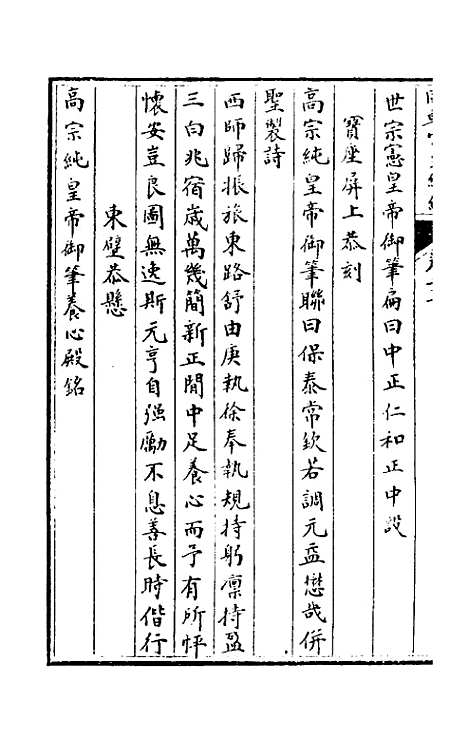 世宗憲皇帝御筆扁曰中正仁和正中設
寳座屏上恭刻
高宗純皇帝御筆聯曰保泰常欽若調元益懋哉併
聖製詩
西師歸振旅東路舒由庚執徐奉執規持躬凜持盈
三白兆宿歲萬幾簡新正閒中足養心而予有所怦
懷安豈良圖無逸斯元亨自強勵不息善長時偕行
東壁恭懸
高宗純皇帝御筆養心殿銘